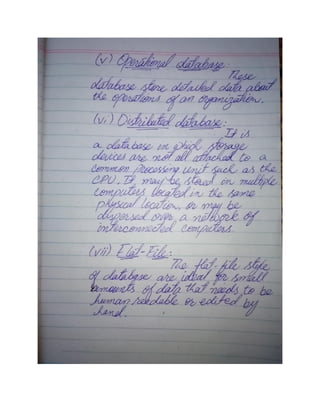 (v) Operational database:
These
database store detailed data about
the operations of an organization.
(vi) Distributed database:
It is
a database in which storage
devices are not all attached to a
common processing unit such as the
CPU. It may be stored in multiple
computers located in the same
physical location, or may be
dispersed over a network of
interconnected computers.
(vii) Flat-File:
The flat-file style
of database are ideal for small
amounts of data that needs to be
human readable or edited by
hand.